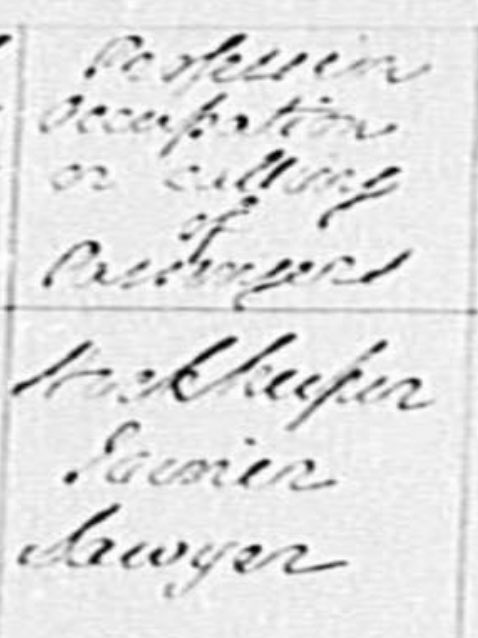 Profession
Occupation
or calling
of
Passengers
Stockkeeper
Joiner
Sawyer